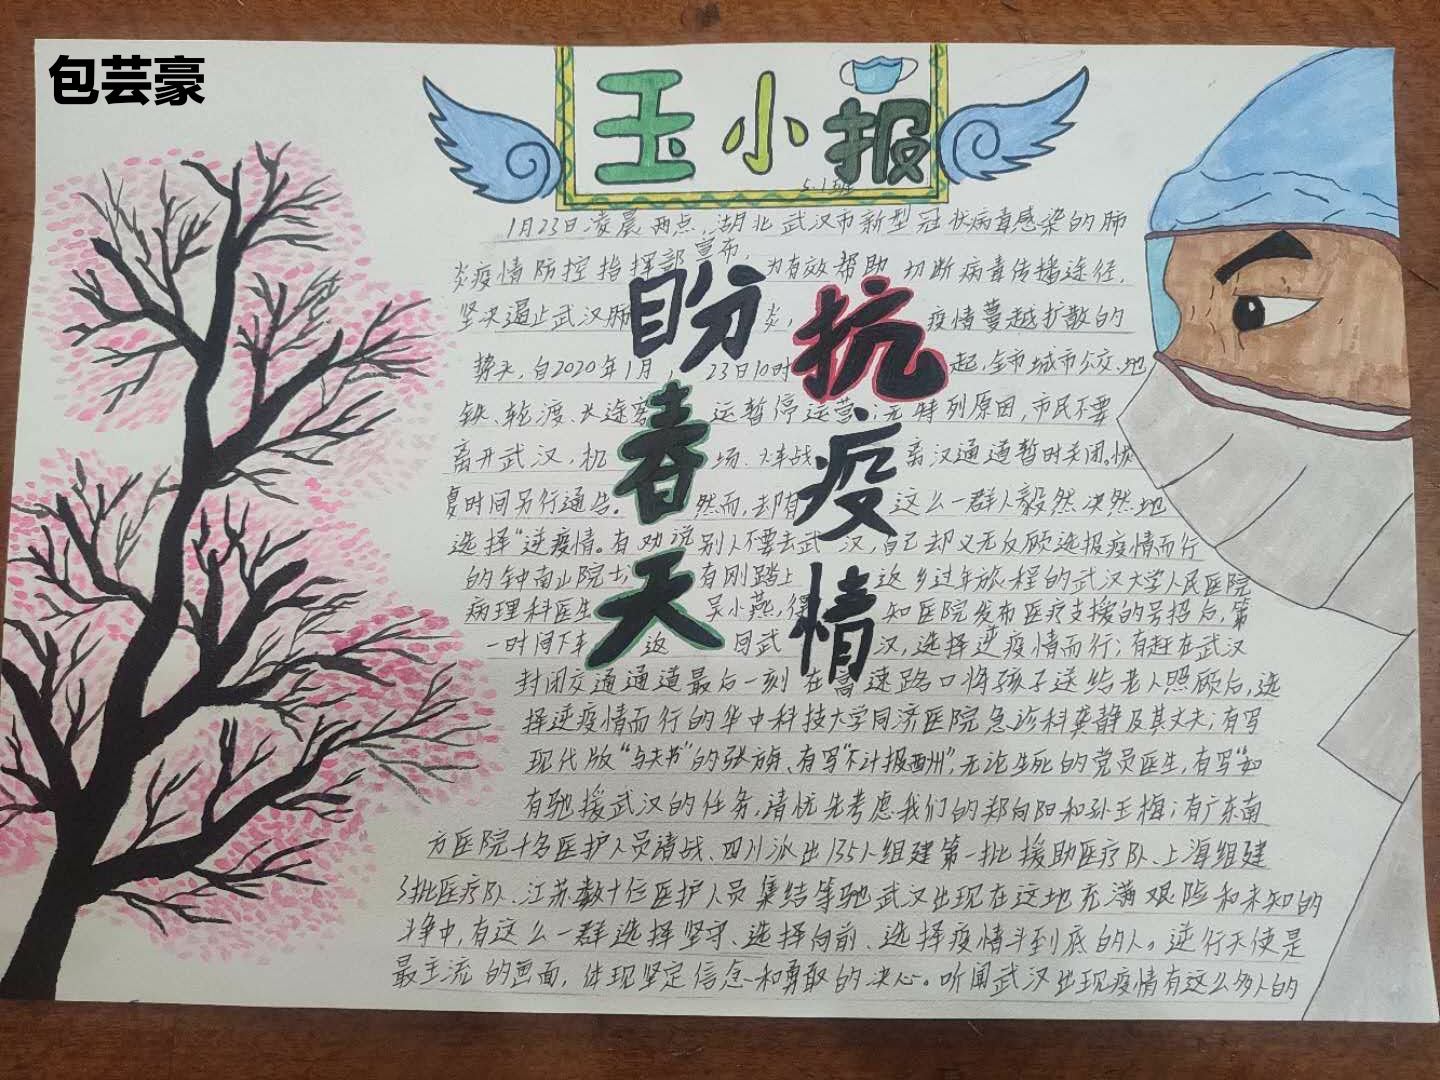 包芸豪
玉小报
5.1班
抗疫情
盼春天
1月23日凌晨两点,湖北武汉市新型冠状病毒感染的肺
炎疫情防控指挥部宣布,为有效帮助切断病毒传播途径,
坚决遏止武汉肺炎,疫情蔓越扩散的
势头,自2020年1月,23日10时起,全市城市公交、地
铁、轮渡、长途客运暂停运营;无特列原因,市民不要
离开武汉,机场、火车战离汉通道暂时关闭。恢
复时间另行通告。然而,却有这么一群人毅然决然地
选择"逆疫情。有劝说别人不要去武汉,自己却义无反顾选报疫情而行
的钟南山院士,有刚踏上返乡过年旅程的武汉大学人民医院
病理科医生吴小燕,得知医院发布医疗支援的号招后,第
一时间下车返回武汉,选择逆疫情而行;有赶在武汉
封闭交通通道最后一刻在高速路口将孩子送给老人照顾后,选
择逆疫情而行的华中科技大学同济医院急诊科龚静及其丈夫;有写
现代版"与夫书"的张旃、有写"不计报酬",无论生死的党员医生,有写"如
有驰援武汉的任务,请优先考虑我们的郑向阳和孙玉梅;有广东南
方医院十名医护人员请战、四川派出135人组建第一批援助医疗队、上海组建
3批医疗队、江苏数十位医护人员集结等驰武汉出现在这地充满艰险和未知的
斗争中,有这么一群选择坚守、选择向前、选择疫情斗到底的人。逆行天使是
最主流的画面,体现坚定信念和勇敢的决心。听闻武汉出现疫情有这么多人的